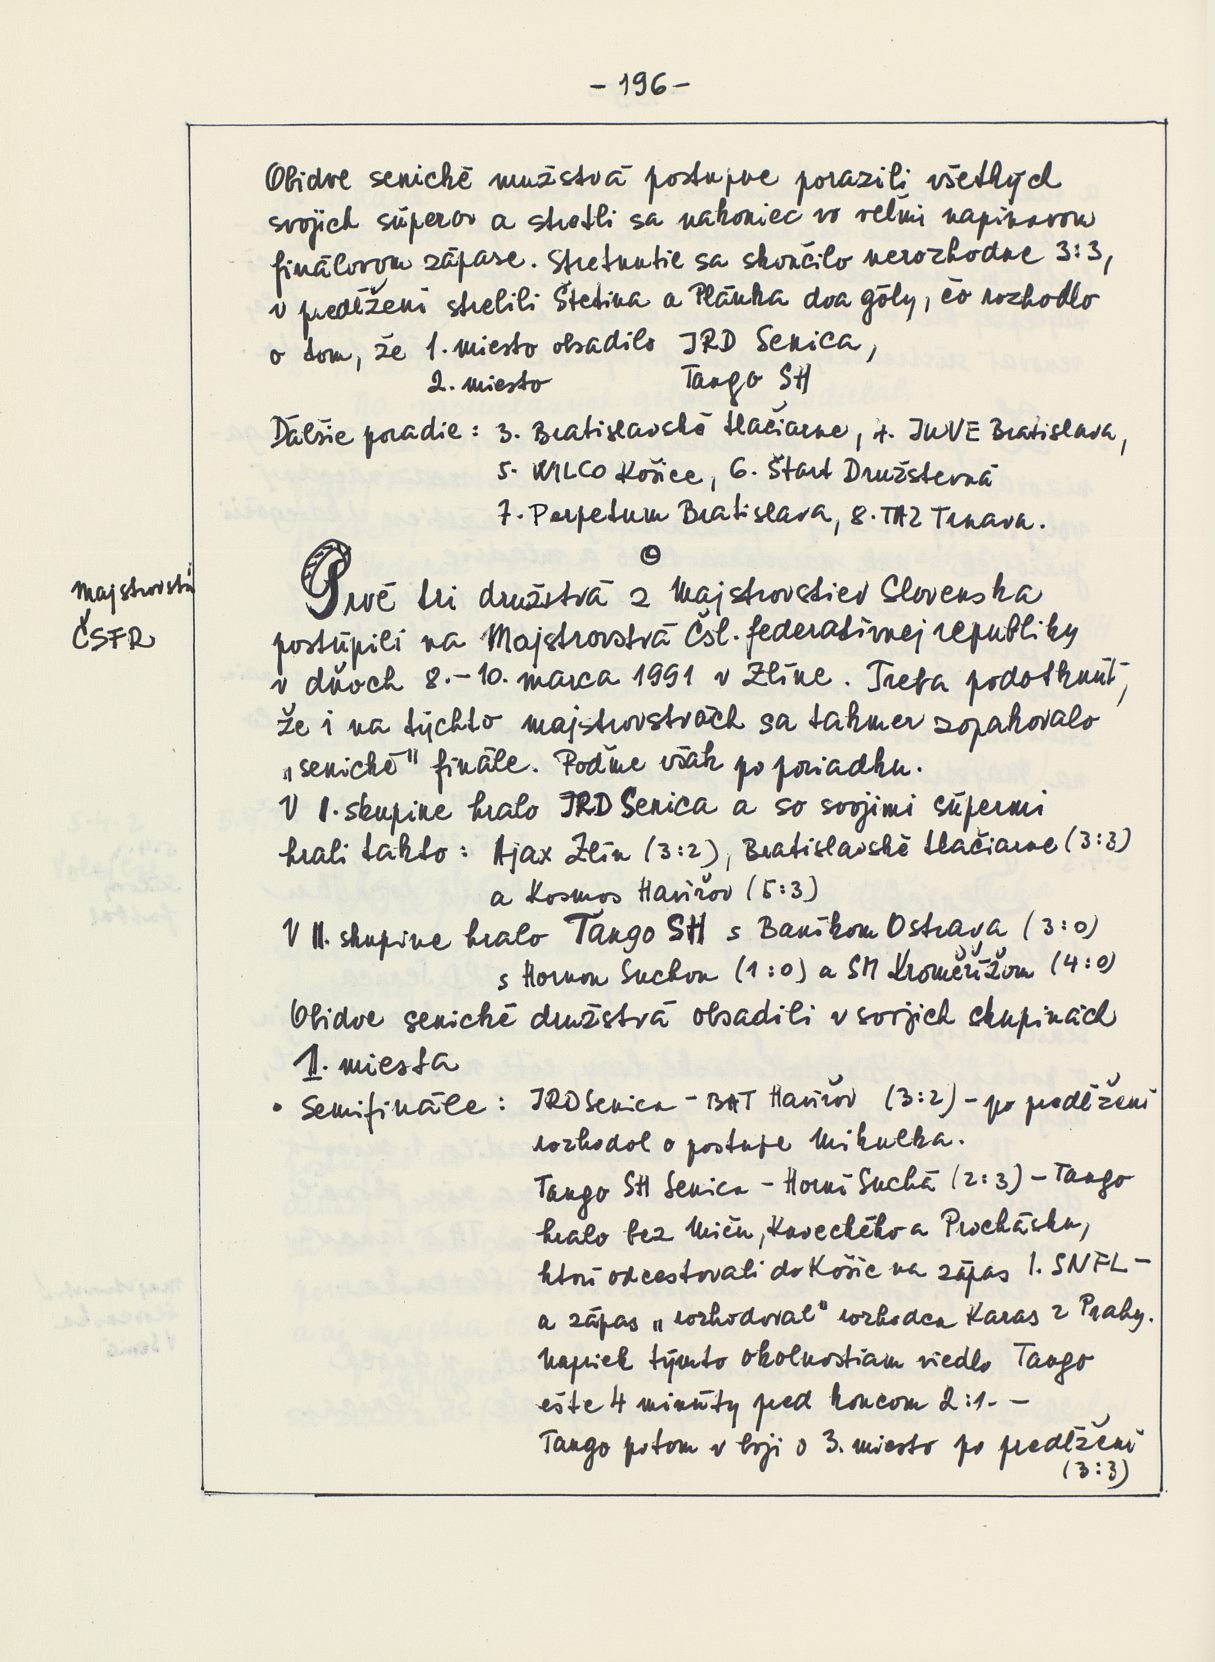 - 196 -
Obidve senické mužstvá postupne porazili všetkých
svojich súperov a stretli sa nakoniec vo veľmi napínavom
finálovom zápase. Stretnutie sa skončilo nerozhodne 3:3,
v predĺžení strelili Štetina a Plánka dva góly, čo rozhodlo
o tom, že 1. miesto obsadilo JRD Senica,
2. miesto Tango SH
Ďalšie poradie: 3. Bratislavské tlačiarne, 4. INVE Bratislava,
5. WILCO Košice, 6. Štart Družstevná
7. Perpetum Bratislava, 8. TAZ Trnava.
Majstrovstvá
ČSFR
Prvé tri družstvá z Majstrovstiev Slovenska
postúpili na Majstrovstvá Čsl. federatívnej republiky
v dňoch 8.-10. marca 1991 v Zlíne. Treba podotknúť,
že i na týchto majstrovstvách sa takmer zopakovalo
„senické" finále. Poďme však po poriadku.
V I. skupine hralo JRD Senica a so svojimi súpermi
hrali takto: Ajax Zlín (3:2), Bratislavské tlačiarne (3:3)
a Kosmos Havířov (5:3)
V II. skupine hralo Tango SH s Baníkom Ostrava (3:0)
s Hornou Suchou (1:0) a SM Kroměřížom (4:0)
Obidve senické družstvá obsadili v svojich skupinách
1. miesta
• Semifinále: JRD Senica - BAT Havířov (3:2) - po predĺžení
rozhodol o postupe Mikulka.
Tango SH Senica - Horní Suchá (2:3) - Tango
hralo bez Miču, Knoeckého a Procházku,
ktorí odcestovali do Košíc na zápas 1. SNFL -
a zápas „rozhodoval" rozhodca Karas z Prahy.
Napriek týmto okolnostiam viedlo Tango
ešte 4 minúty pred koncom 2:1. -
Tango potom v boji o 3. miesto po predĺžení
(3:3)